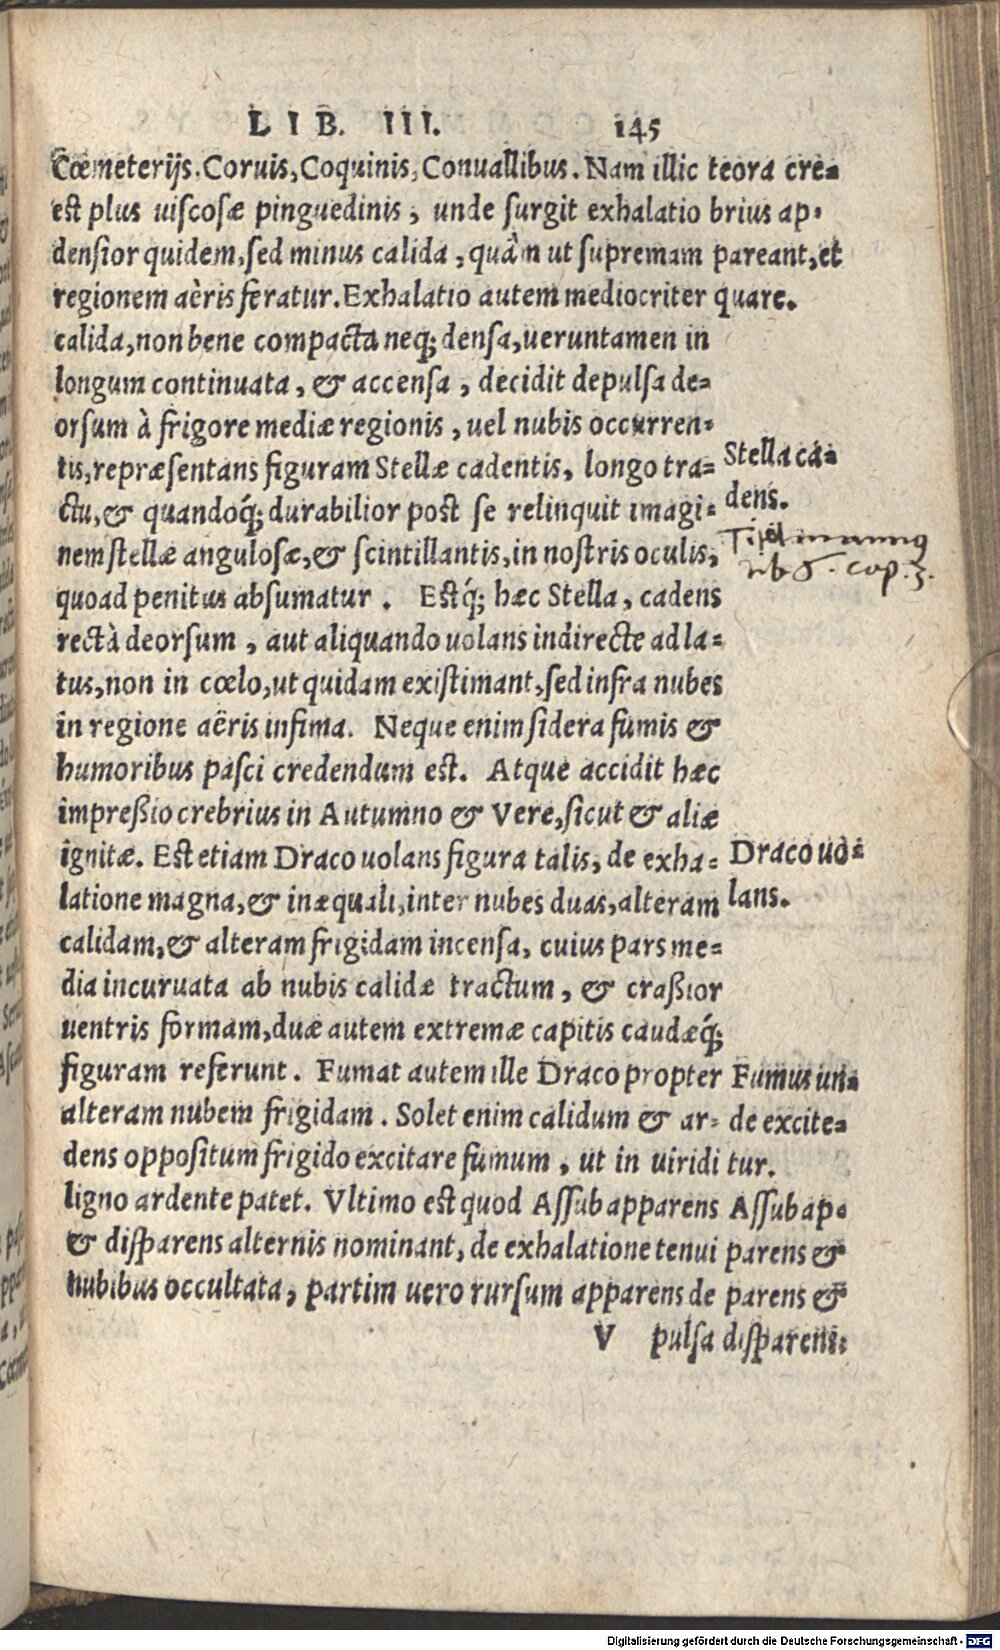 LIB. III. 145
Cœmeterijs. Coruis, Coquinis, Conuallibus. Nam illic
teora cre=
est plus uiscosæ pinguedinis, unde surgit exhalatio
brius ap=
densior quidem, sed minus calida, quàm ut supremam
pareant, et
regionem aëris feratur. Exhalatio autem mediocriter
quare.
calida, non bene compacta neq; densa, ueruntamen in
longum continuata, & accensa, decidit depulsa de=
orsum à frigore mediæ regionis, uel nubis occurren=
tis, repræsentans figuram Stellæ cadentis, longo tra=
Stella ca=
ctu, & quandoq́; durabilior post se relinquit imagi=
dens.
nem stellæ angulosæ, & scintillantis, in nostris oculis,
quoad penitus absumatur. Estq́; hæc Stella, cadens
cap. 3.
rectà deorsum, aut aliquando uolans indirecte ad la=
tus, non in cœlo, ut quidam existimant, sed infra nubes
in regione aëris infima. Neque enim sidera fumis &
humoribus pasci credendum est. Atque accidit hæc
impreßio crebrius in Autumno & Vere, sicut & aliæ
ignitæ. Est etiam Draco uolans figura talis, de exha=
Draco uo=
latione magna, & inæquali, inter nubes duas, alteram
lans.
calidam, & alteram frigidam incensa, cuius pars me=
dia incuruata ab nubis calidæ tractum, & craßior
uentris formam, duæ autem extremæ capitis caudæq́;
figuram referunt. Fumat autem ille Draco propter
Fumus un=
alteram nubem frigidam. Solet enim calidum & ar=
de excite=
dens oppositum frigido excitare fumum, ut in uiridi
tur.
ligno ardente patet. Vltimo est quod Assub apparens
Assub ap=
& disparens alternis nominant, de exhalatione tenui
parens &
nubibus occultata, partim uero rursum apparens de
parens &
V pulsa disparens:
Digitalisierung gefördert durch die Deutsche Forschungsgemeinschaft - DFG